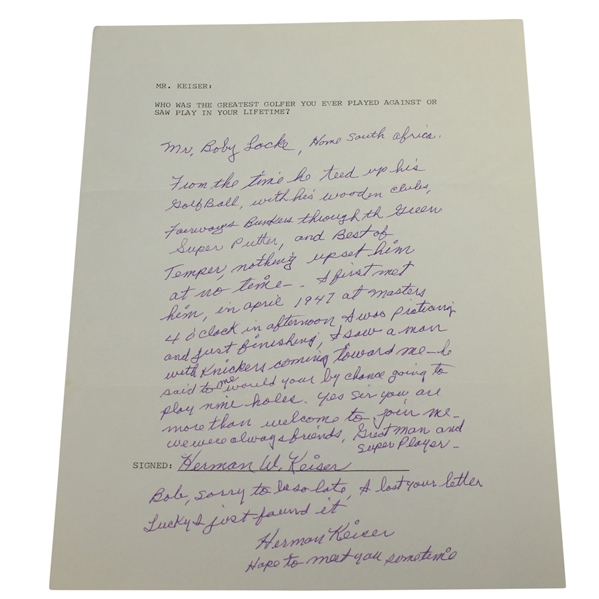 MR. KEISER:
WHO WAS THE GREATEST GOLFER YOU EVER PLAYED AGAINST OR
SAW PLAY IN YOUR LIFETIME?
Mr, Boby Locke, Home South Africa.
From the time he teed up his
Golf Ball, with his wooden clubs,
Fairways Bunkers through th Green
Super Putter, and Best of
Temper, nothing upset him
at no time - I first met
him, in april 1947 at Masters
4 o'clock in afternoon I was practicing
and just finishing, I saw a man
with Knickers coming toward me - he
said to me would your by chance going to
play nine holes. Yes sir you are
more than welcome to join me -
we were always friends, Great man and
Super Player -
SIGNED: Herman W. Keiser
Bob, sorry to be so late, I lost your letter
Lucky I just found it
Herman Keiser
Hope to meet you sometime